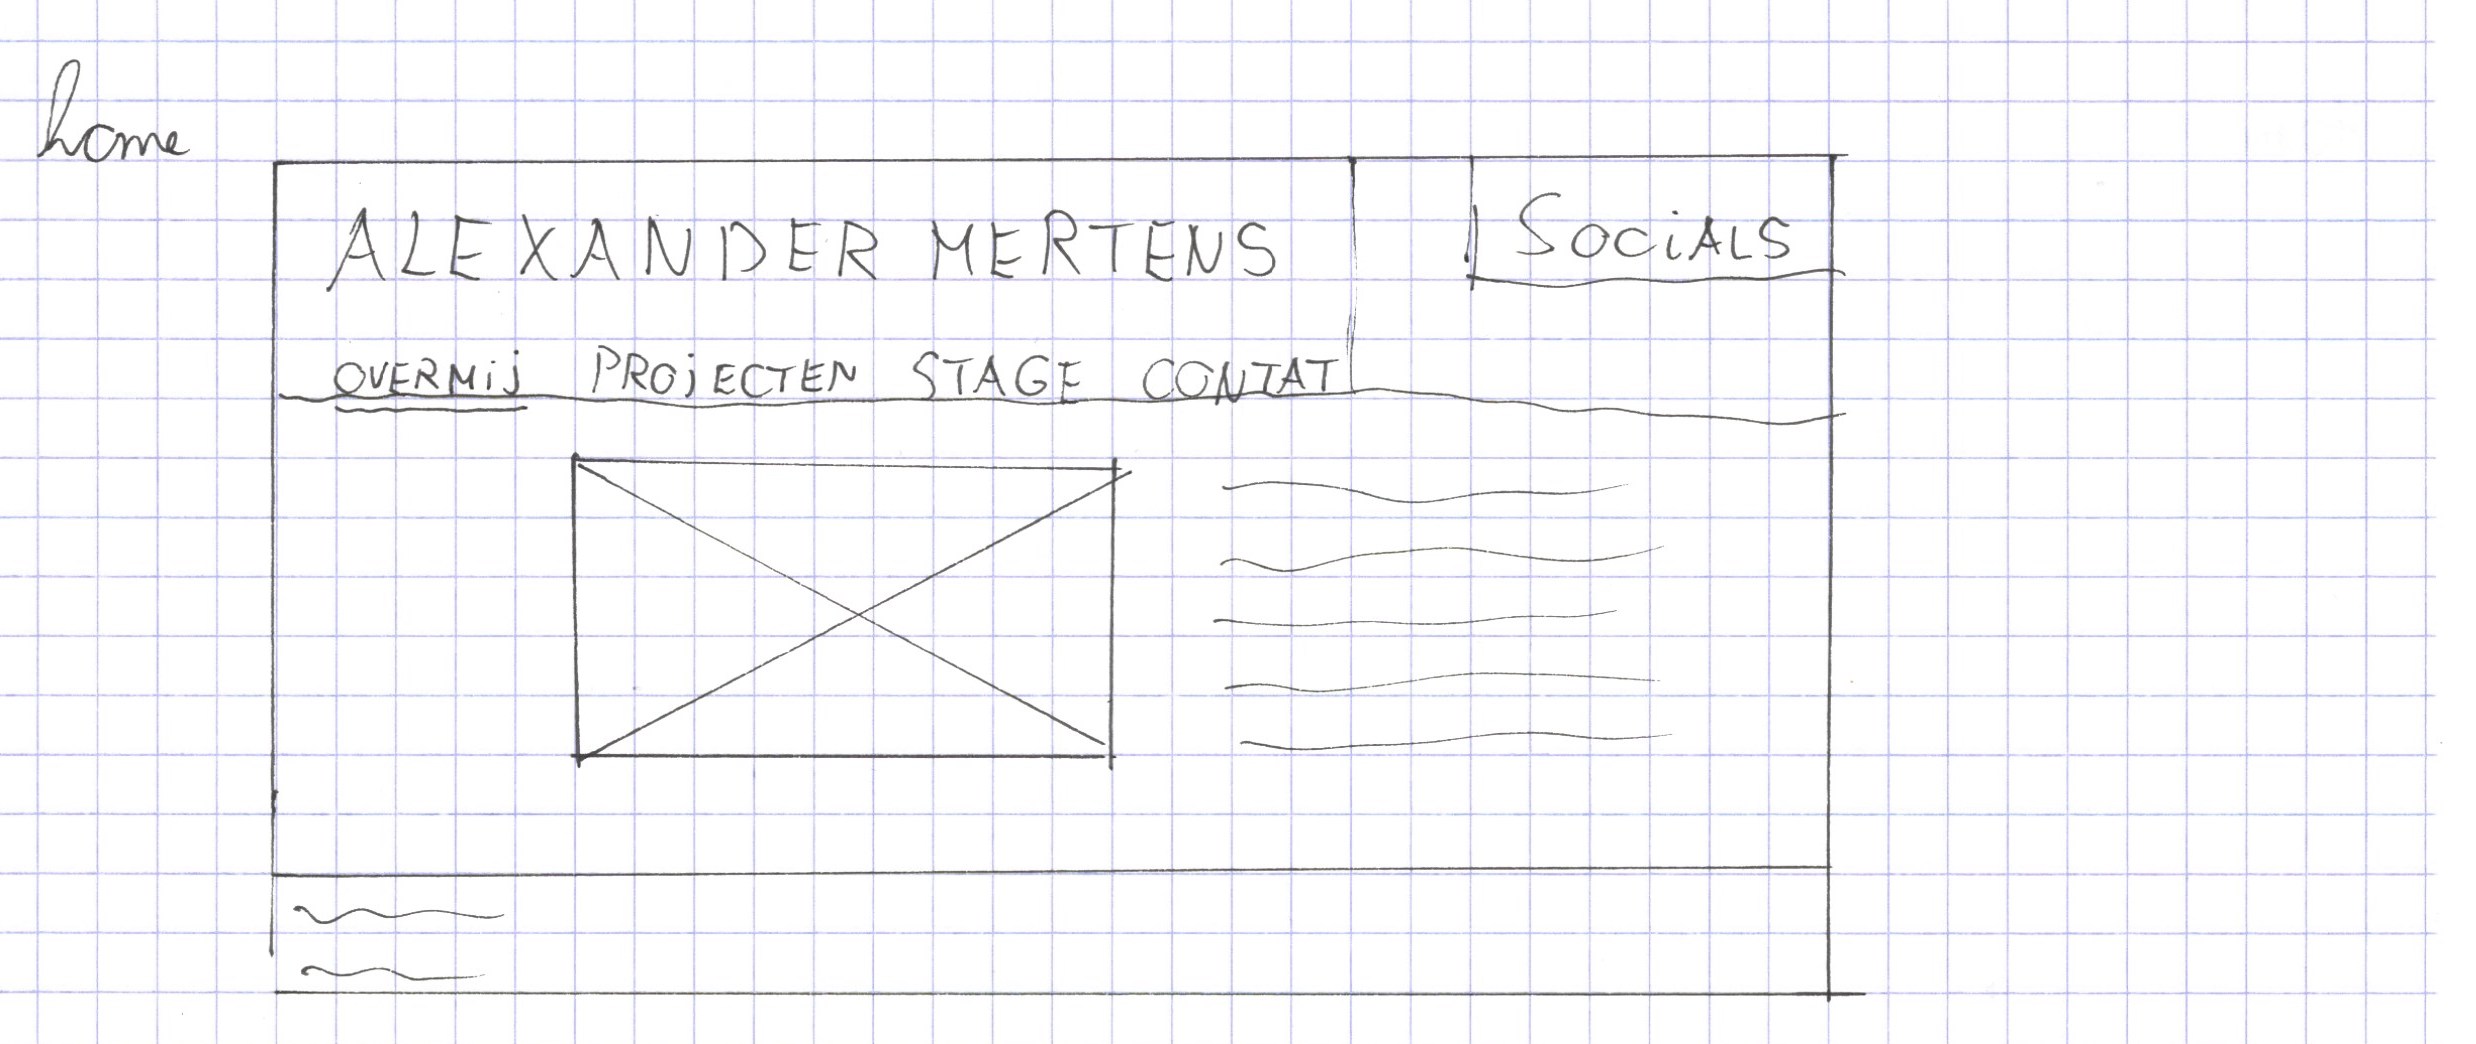 home
ALEXANDER MERTENS
SOCiALS
OVERMij PROjECTEN STAGE CONTAT